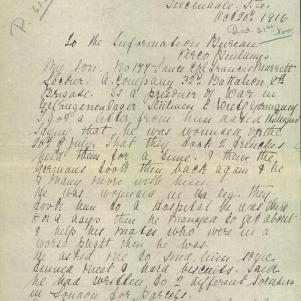 Lucindale, S.A.
Oct 20th 1916
To the Information Bureau
Red X
My Son. No 144 Lance Cpl Francis Marrett
A. Company 32nd Battalion 8th
Brigade. Is a prisoner of War in
Gefangenenlager Dülmen I West Germany
I got a letter from him dated
saying that he was wounded on the
20th of July. That they took 2 trenches
held them for a time. & then the
Germans took them back again & he
& many more with him.
He was wounded in the leg. They
took him to a hospital he was there
for a days then he managed to get about
& help his mates who were in a
worse plight than he was.
He asked me to send him some
tinned meat & hard biscuits. Said
he had written to 2 different Societies
in London for parcels.